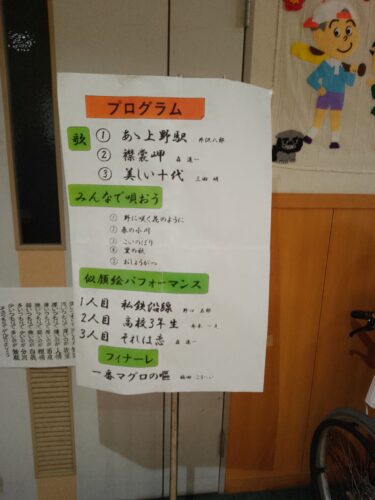 プログラム
歌 ① あゝ上野駅 井沢八郎
② 襟裳岬 森 進一
③ 美しい十代 三田 明
みんなで唄おう
① 野に咲く花のように
② 春の小川
③ こいのぼり
④ 里の秋
⑤ おしょうがつ
似顔絵パフォーマンス
1人目 私鉄沿線 野口 五郎
2人目 高校3年生 舟木 一夫
3人目 それは恋 森 進一
フィナーレ
一番マグロの謳 福田 こうへい